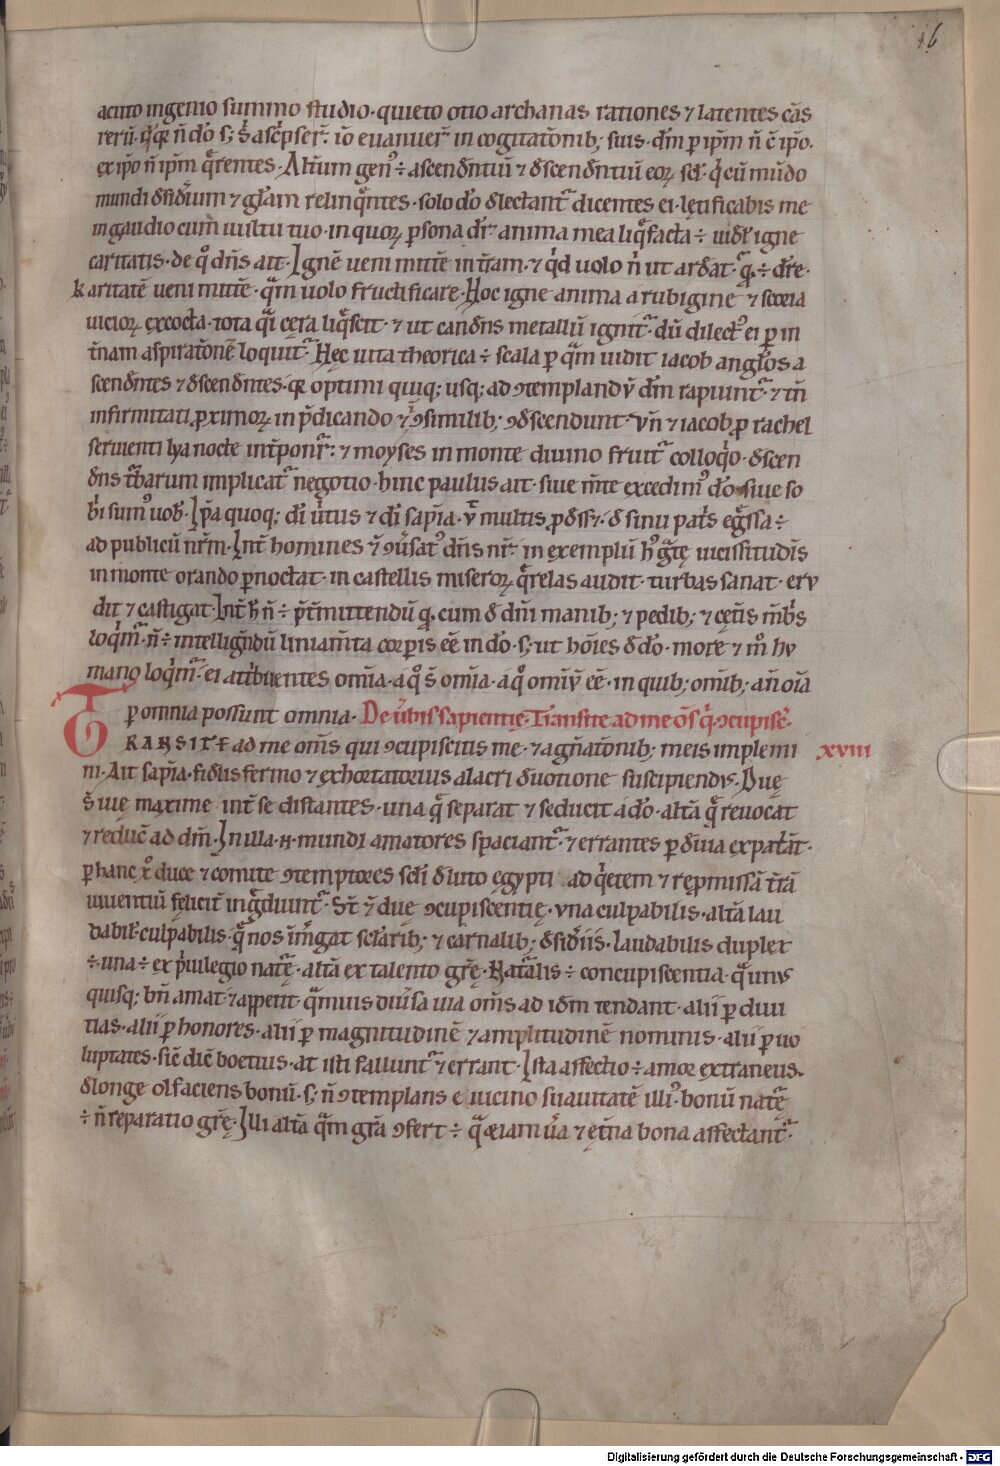 16
acuto ingenio summo studio· quieto otio archanas rationes ⁊ latentes cās
rerū· q̇q; n̄ dō s; s̄ ascp̄ser̄· iō euanuer̄ in cogitatōnib; suis· dm̄ p ipm̄ n̄ ē ip̄o·
ex ip̄o n̄ ipm̄ q̄rentes· Altm̄um gen᷒ ÷ ascendn̄tiū ⁊ dscendn̄tiū eoꝝ scl̄· q̇ cū mūdo
mundi dsid̄ium ⁊ glam̄ relinq̄ntes· solo dō dlectant᷑ dicentes ei· lętificabis me
in gaudio cum uultu tuo· in quoꝝ ꝑsona dr̄· anima mea liq̄facta ÷ uidel̄ igne
caritatis· de q̊ dn̄s ait· Ignē ueni mittē in tr̄am· ⁊ qḋ uolo n̄ ut ardat· q̄· ÷ dr̄e·
karitatē ueni mittē· q̄m uolo fructificare· Hoc igne anima a rubigine ⁊ scoria
uicioꝝ excocta· tota q̄i cera liq̄scit· ⁊ ut candn̄s metallū ignit᷑· dū dilect᷒ ei ꝑ in
tn̄am aspiratōnē loquit᷑· Hęc uita theorica ÷ scala ꝑ q̄m uidit iacob angl̄os a
scendn̄tes ⁊ dscendn̄tes· q; optimi quiq; usq; ad ꝯtemplandū dm̄ rapiunt᷑· ⁊ tn̄
infirmitati ꝓximoꝝ· in p̄dicando ⁊ ꝯsimilib; ꝯdscendunt· vn̄ ⁊ iacob ꝓ rachel
seruienti lya nocte intp̄onr̄· ⁊ moyses in monte diuino fruit᷑ colloq̇o· dscen
dn̄s tb̄arum implicat᷑ negotio· hinc paulus ait· siue mn̄te excedim᷒ dō· siue so
bi̇i sum᷒ uob̄· Ip̄a quoq; di̇ u̇tus ⁊ di̇ sap̄ia· ÷ multis ꝓdss ⁊· d sinu pat̄s egssa ÷
ad publicū nr̄m· Int̄ homines ē ꝯu̇sat᷒ dn̄s nr̄· in exemplū h᷒ gr̄ę uicissitudīs
in monte orando ꝑnoctat· in castellis miseroꝝ q̄relas audit· turbas sanat· eru
dit ⁊ castigat· Int̄ h̄ n̄ ÷ p̄tm̄ittendū q; cum d dn̄i manib; ⁊ pedib; ⁊ cęt̄is mb̄ris
loq̇m᷑· n̄ ÷ intelligndū liniam̄ta corꝑis eē in dō· s; ut hoīes d dō· more ⁊ m̊ hu
mano loq̇m᷑· ei atib̄uentes omīa· a q̊ s̄ omīa· a q̊ omīū eē· in quib; omīb; an̄ oīa
ꝑ omnia possunt omnia· De ůbis sapientię· Transite ad me om̄s q̇ ꝯcupisc̄·
TRANSITE ad me om̄s qui ꝯcupiscitis me· ⁊ a gn̄atōnib; meis implemi xviii
ni· Ait sap̄ia· fidlis sermo ⁊ exhortatorius alacri duotione suscipiendus· Duę
s̄ uię maxime int̄ se distantes· una q̄ separat ⁊ seducit a dō· altā q̄ reuocat
⁊ reducē ad dm̄· In illa n̄ mundi amatores spaciant᷑· ⁊ errantes ꝑ diuia expat̄āt·
ꝑ hanc x̊ duce ⁊ comite ꝯtemptores scl̄i d luto egypti ad q̇etem ⁊ rep̄missā tr̄ā
uiuentiū felicit̄ ingdiunt᷑· St̄ ÷ duę ꝯcupiscentię· vna culpabilis· altā lau
dabil̄· culpabilis· q̄ nos im̄gat sclarib; ⁊ carnalib; dsidiis· Laudabilis duplex
÷· una ÷ ex ṗuilegio nat᷑ę· altā ex talento gr̄ę· Nat᷑alis ÷ concupiscentia· q̄ unus
quisq; bn̄ amat ⁊ appetit· q̄muis diuisa uia om̄s ad idm tendant· alii ꝑ diui
tias· alii ꝑ honores· alii ꝑ magnitudinē ⁊ amplitudinē nominis· alii ꝑ uo
luptates· sic̄ dic̄ boetius· at isti fallunt᷑ ⁊ errant· Ista affectio ÷ amor extraneus·
dlonge olfaciens bonū· s; n̄ ꝯtemplans e uicino suauitatē illi᷒· bonū nat᷑ę
÷ n̄ reparatio gr̄ę· Illi altā q̄m gr̄a ꝯfert ÷ q̄ etiam u̇a ⁊ ętn̄a bona affectant᷑·
Digitalisierung gefördert durch die Deutsche Forschungsgemeinschaft - DFG